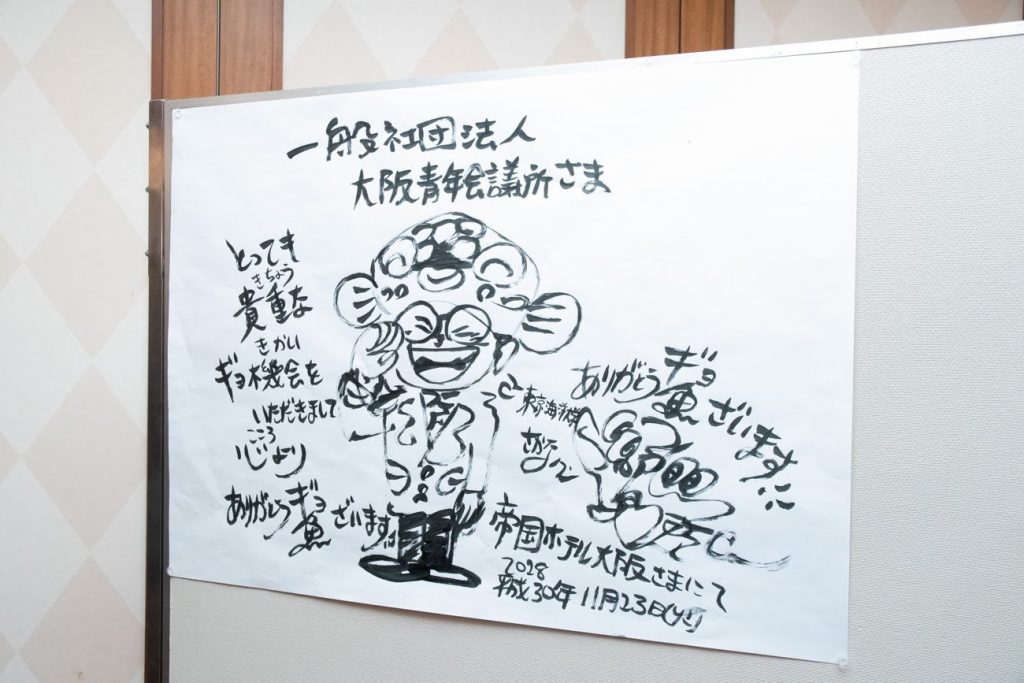 一般社団法人
大阪青年会議所さま
とっても
きちょう
貴重な
きかい
ギョ機会を
いただきまして
こころ
心より
ありがとうギョ
魚ざいます
東京海洋大
ギョ
ありがとう魚ざいます
帝国ホテル大阪さまにて
2018
平成30年11月23日(火)